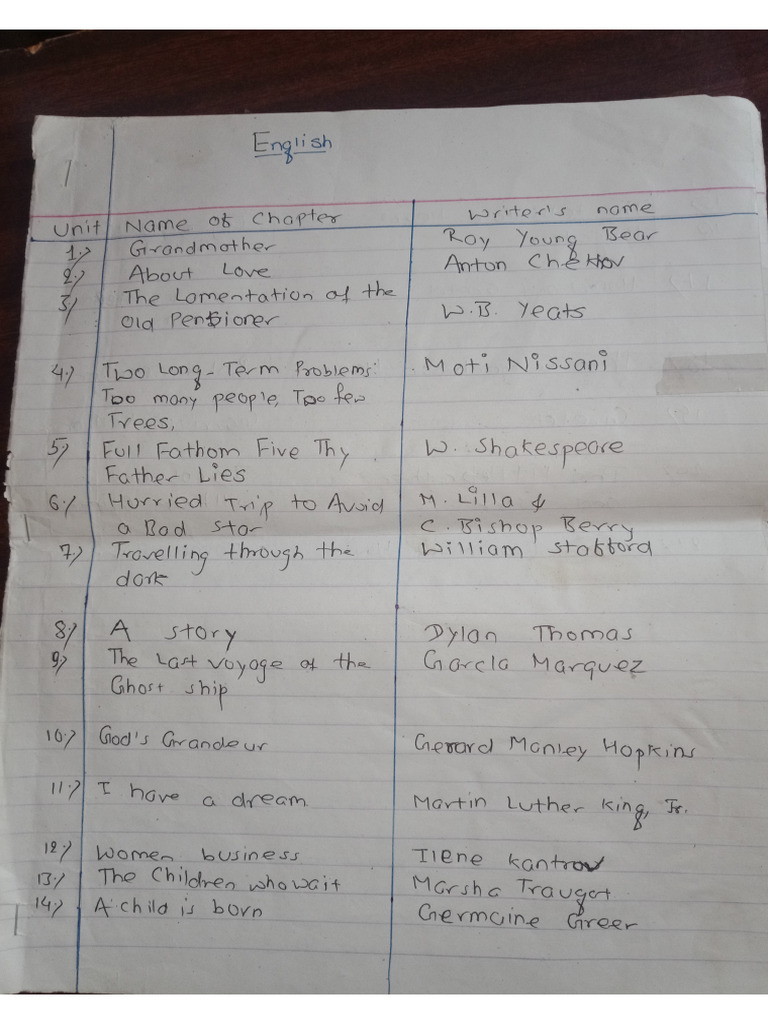 English
Unit Name of Chapter Writer's name
1.) Grandmother Ray Young Bear
2.) About Love Anton Chekhov
3.) The Lamentation of the
Old Pensioner W.B. Yeats
4.) Two Long-Term Problems: Moti Nissani
Too many people, Too few
Trees,
5.) Full Fathom Five Thy W. Shakespeare
Father Lies
6.) Hurried Trip to Avoid M. Lilla &
a Bad Star C. Bishop Berry
7.) Travelling through the William Stafford
dark
8.) A story Dylan Thomas
9.) The Last Voyage of the Garcla Marquez
Ghost ship
10.) God's Grandeur Gerard Manley Hopkins
11.) I have a dream Martin Luther King, Jr.
12.) Women business Ilene Kantrov
13.) The Children who wait Marsha Traugot
14.) A child is born Germaine Greer